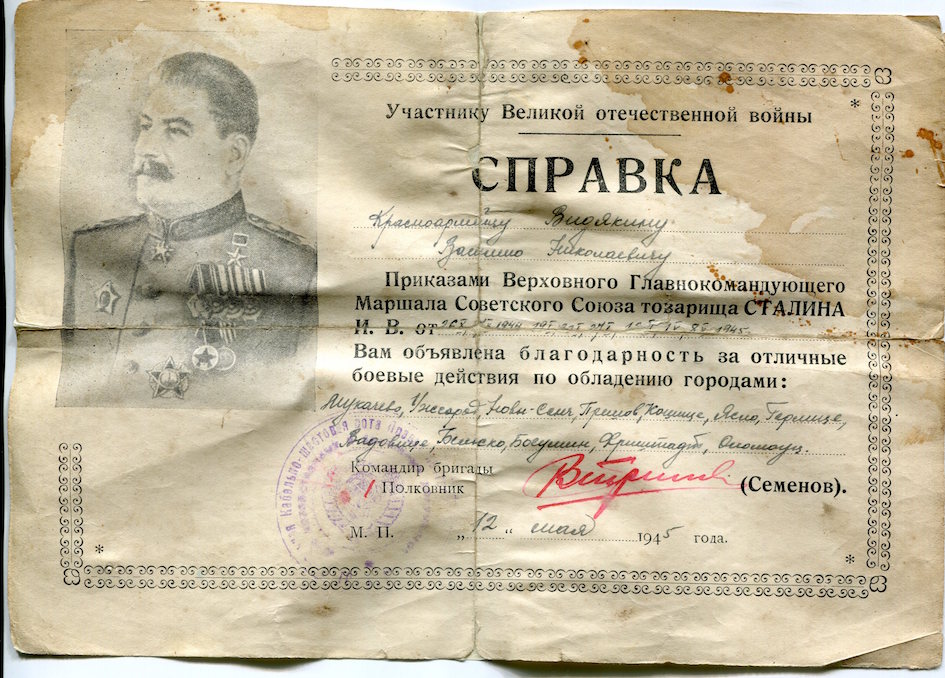 Участнику Великой отечественной войны
СПРАВКА
Красноармейцу Видякину
Николаевичу
Приказами Верховного Главнокомандующего
Маршала Советского Союза тозарища СТАЛИНА
И. В. от 1944 1945
Вам объявлена благодарность за отличные
боевые действия по обладению городами:
Мукачево, Ужгород, Нови-Сенч, Прешов, Кошице, Ясло, Горлице,
Вадовице, Бельско, Богумин, Фриштадт, Оломоуц.
Командир бригады
Полковник (Семенов).
М. П. „12„ мая 1945 года.
Кабельно-шестовая рота